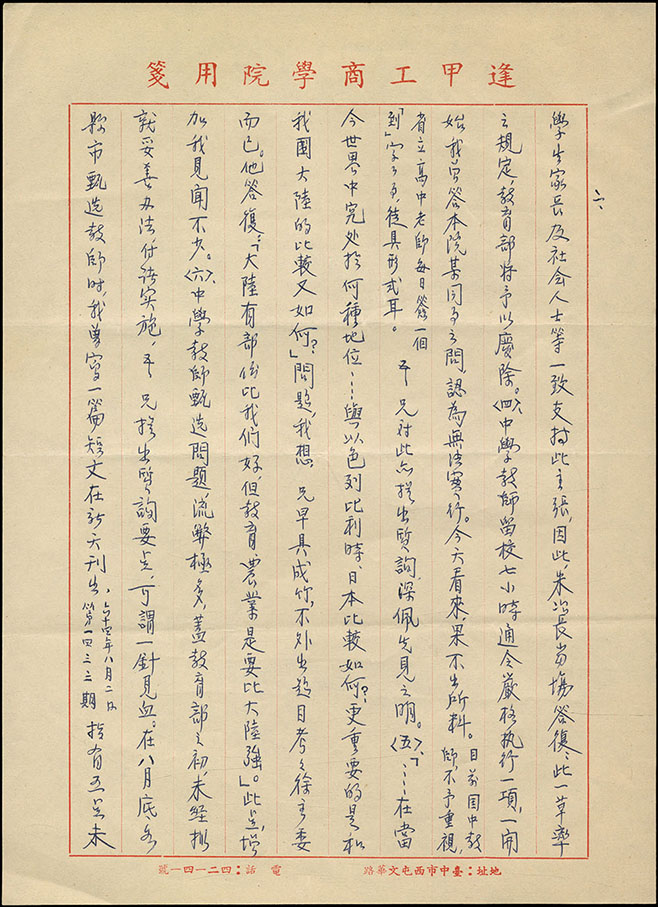 逢甲工商學院用箋
學生家長及社會人士等一致支持此主張,因此,朱次長當場答復:此一草率
之規定,教育部將予以廢除。〈四〉、中學教師留校七小時通令嚴格執行一項,一開
始我曾答本院某同事之問,認為無法實行。今天看來,果不出所料。目前國中教
師,不予重視
省立高中老師每日簽一個
「到」字了事,徒具形式耳。 平兄對此亦提出質詢,深佩先見之明。〈五〉、「……在當
今世界中究處於何種地位……與以色列比利時、日本比較如何?更重要的是和
我國大陸的比較又如何?」問題,我想,兄早具成竹,不外出題目考考徐主委
而已。他答復:「大陸有部份比我們好,但教育、農業是要比大陸強。」此點,增
加我見聞不少。〈六〉、中學教師甄選問題,流弊極多,蓋教育部之初,未經擬
就妥善辦法付諸實施,平兄提出質詢要點,可謂一針見血。在八月底各
縣市甄選教師時,我曾寫一篇短文在新天刊出,
六十四年八月二日
第一四三三期
指有五點未
地址:臺中市西屯文華路 電話:四二一四一號